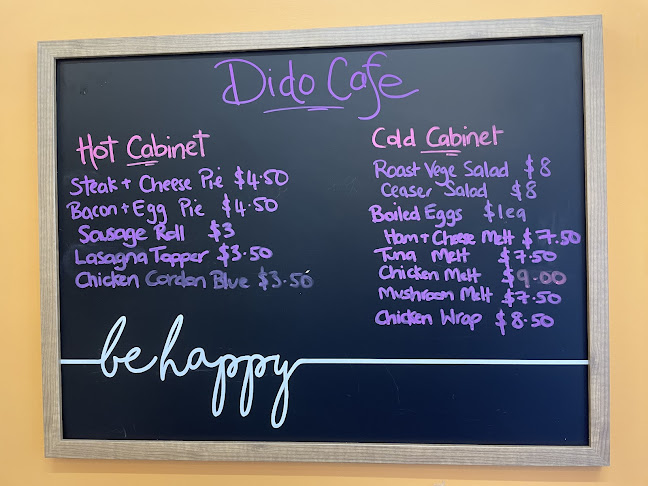 Dido Cafe
Hot Cabinet
Steak + Cheese Pie $4.50
Bacon + Egg Pie $4.50
Sausage Roll $3
Lasagna Topper $3.50
Chicken Cordon Blue $3.50
Cold Cabinet
Roast Vege Salad $8
Ceaser Salad $8
Boiled Eggs $1ea
Ham + Cheese Melt $7.50
Tuna Melt $7.50
Chicken Melt $9.00
Mushroom Melt $7.50
Chicken Wrap $8.50
be happy